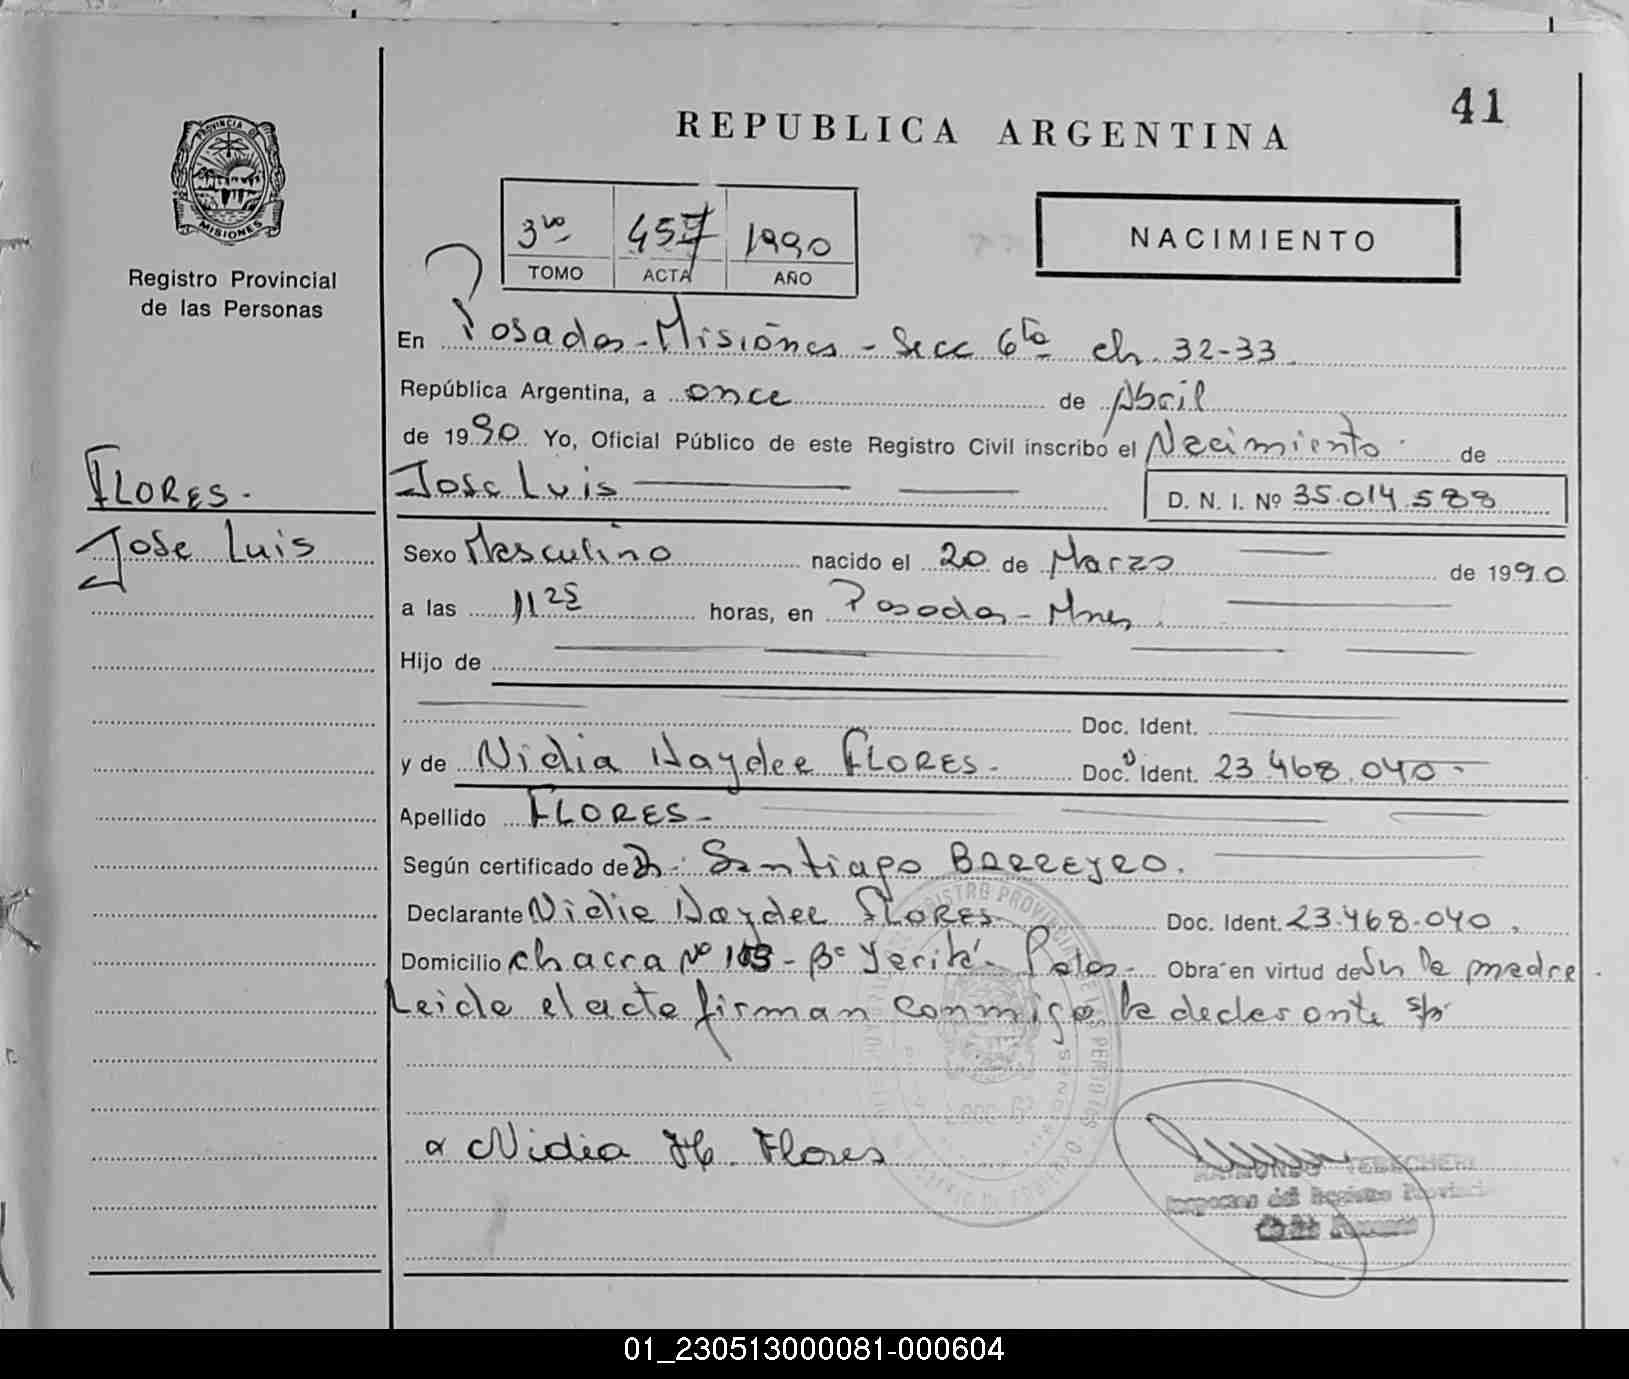 41
REPUBLICA ARGENTINA
PROVINCIA DE
MISIONES
Registro Provincial
de las Personas
3ro 457 1990
TOMO ACTA AÑO
NACIMIENTO
En Posadas - Misiones - Secc 6ta ch. 32-33
República Argentina, a once de Abril
de 1990 Yo, Oficial Público de este Registro Civil inscribo el Nacimiento de
FLORES.
Jose Luis
Jose Luis D. N. I. Nº 35.014.588
Sexo Masculino nacido el 20 de Marzo de 1990
a las 11 25 horas, en Posadas - Mnes.
Hijo de
Doc. Ident.
y de Nidia Haydee FLORES. Doc. Ident. 23.468.040.
Apellido FLORES -
Según certificado de Dr. Santiago BARREYRO.
Declarante Nidia Haydee FLORES Doc. Ident. 23.468.040.
Domicilio chacra Nº - Bº - Obra en virtud de Su la madre
Leida el acta firman conmigo la declarante
Nidia H. Flores
REGISTRO PROVINCIAL DE LAS PERSONAS
Registro Provincial
01_230513000081-000604